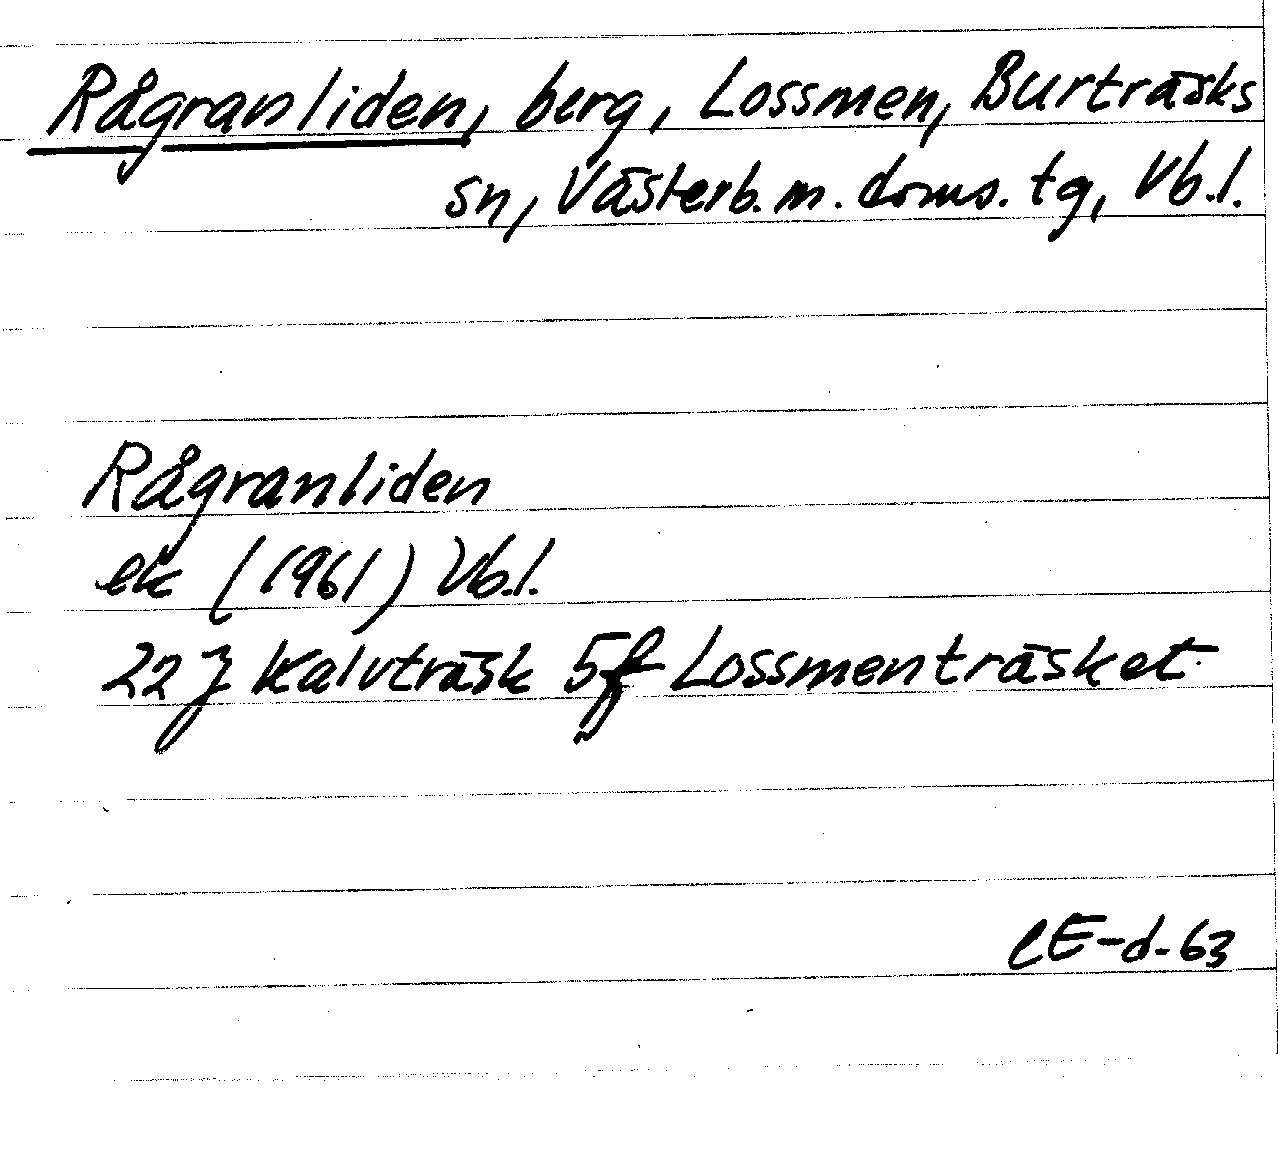 Rågranliden, berg, Lossmen, Burträsks
sn, Västerb. m. doms. tg, Vb.l.
Rågranliden
ek (1961) Vb.l.
22 J Kalvträsk 5f Lossmenträsket
CE-d-63